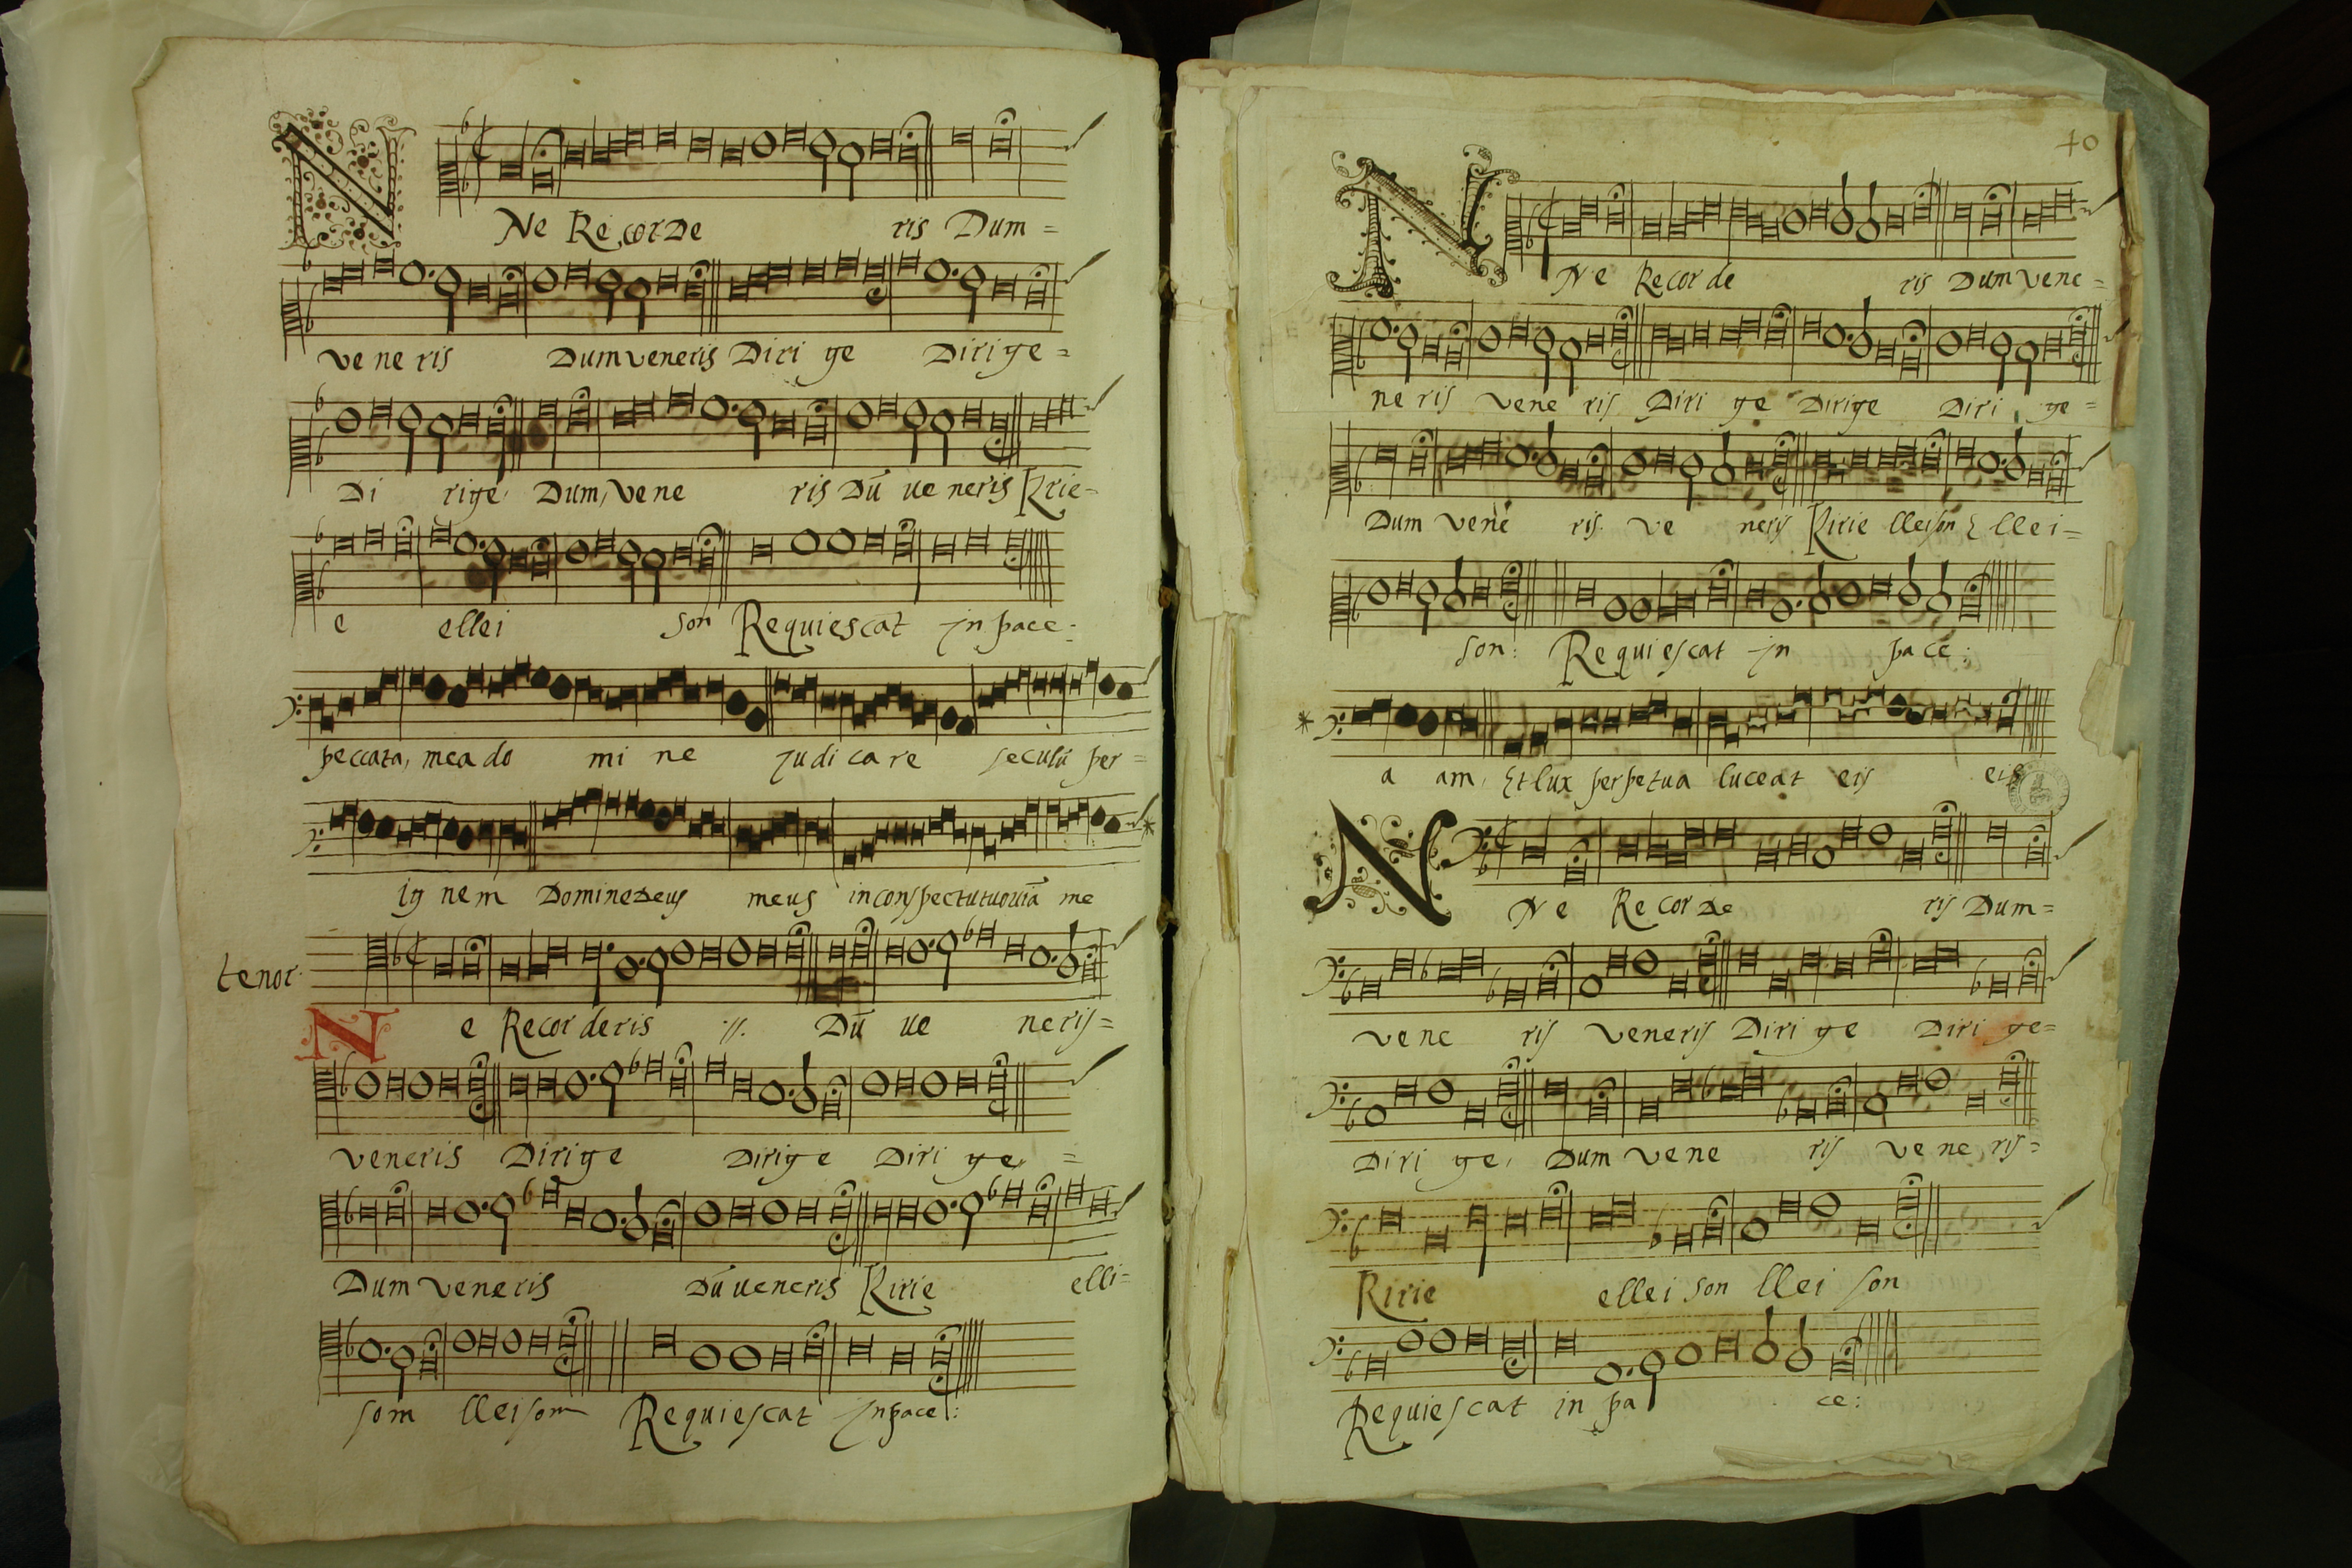 NNe Recorde ris Dum =
ve ne ris Dum veneris Diri ge Dirige =
Di rige Dum, vene ris Dū ue neris Kirie -
e ellei son Requiescat jn pace:
peccata, mea do mi ne judi ca re seculū per =
ig nem Domine deus meus in conspectu tuo uiā me
tenor
Ne Recor deris .//. Dū ue neris =
veneris Dirige Dirige Diri ge =
Dum veneris Dū ueneris Kirie elli =
som lleisom Requiescat jn pace:
40
NNe Recor de ris Dum vene =
ne ris vene ris Diri ge Dirige Diri ge =
Dum vene ris ve neris Kirie lleison Ellei =
son: Requiescat jn pa ce:
a am, Et lux perpetua luceat eis eis
NNe Recor de ris Dum =
vene ris veneris Diri ge Diri ge =
Diri ge, Dum vene ris vene ris =
Kirie ellei son llei son
Requiescat in pa ce: